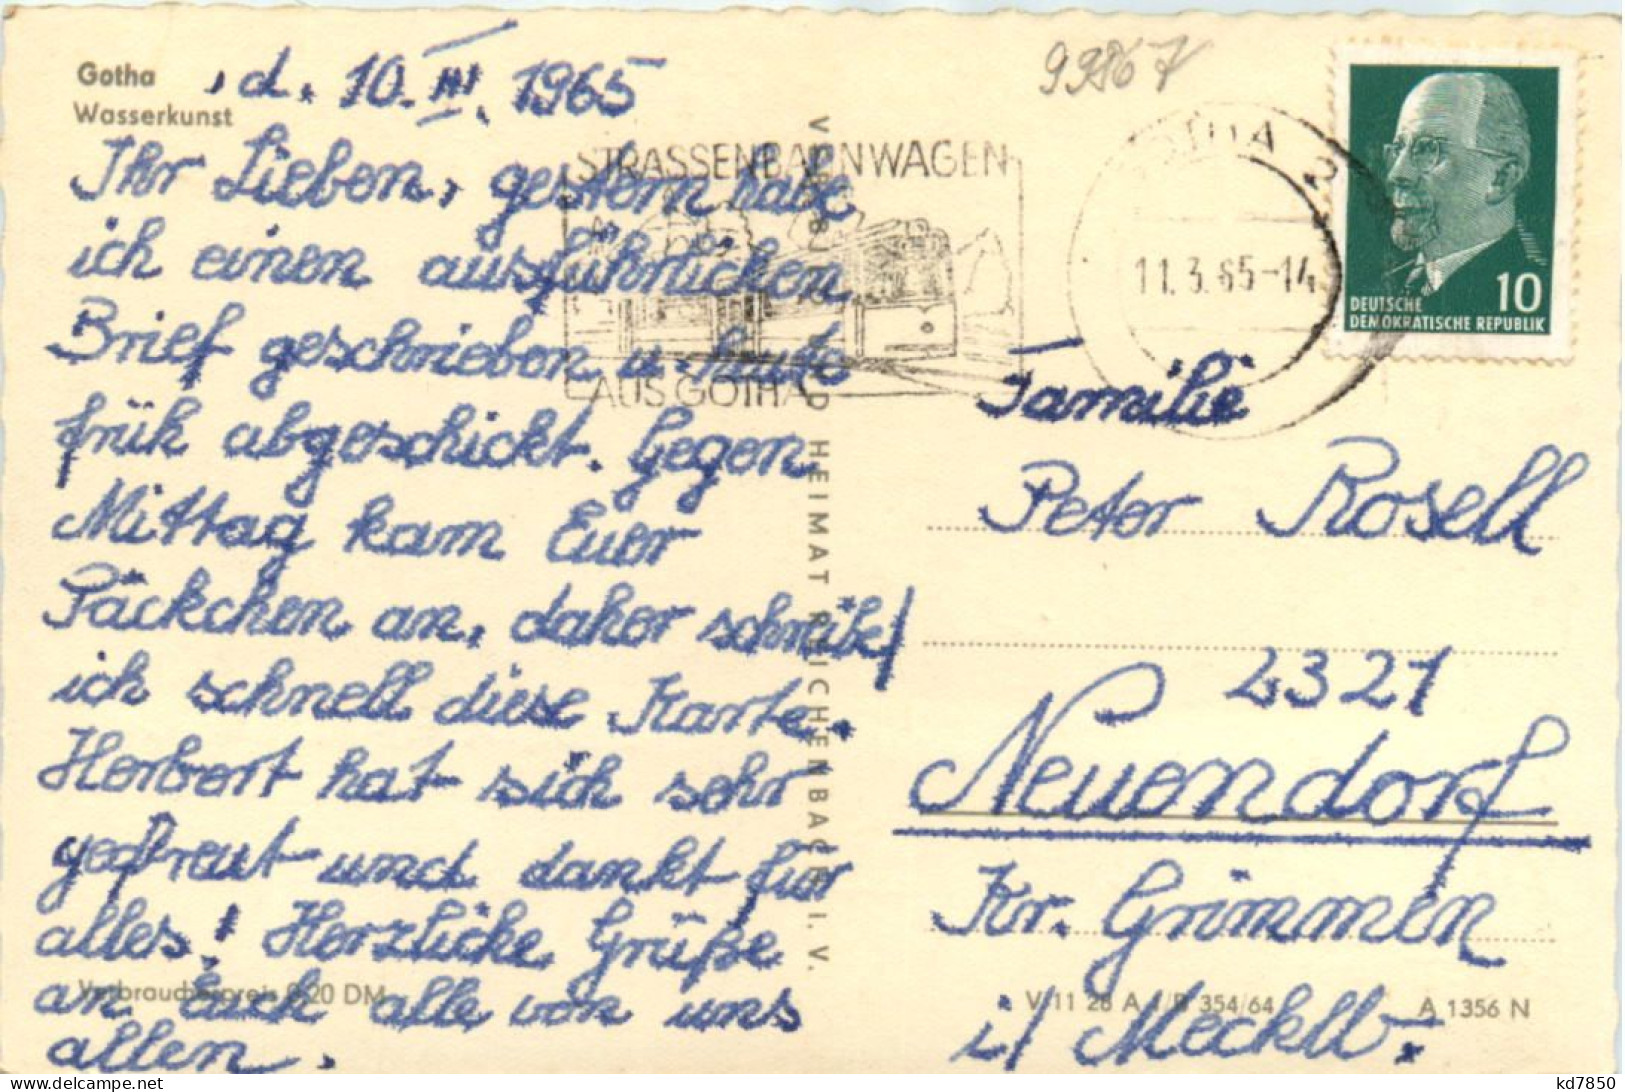 Gotha
Wasserkunst
, d. 10. III. 1965
Ihr Lieben, gestern habe
ich einen ausführlichen
Brief geschrieben u. heute
früh abgeschickt. Gegen
Mittag kam Euer
Päckchen an, daher schreibe
ich schnell diese Karte.
Herbert hat sich sehr
gefreut und dankt für
alles! Herzliche Grüße
an Euch alle von uns
allen.
Verbraucherpreis 0,20 DM
BILD HEIMAT REICHENBACH I. V.
99867
STRASSENBAHNWAGEN
AUS GOTHA
GOTHA 2
11.3.65-14
10
DEUTSCHE
DEMOKRATISCHE REPUBLIK
Familie
Peter Rosell
2321
Neuendorf
Kr. Grimmen
i/ Mecklb.
V 11 28 A 1/B 354/64
A 1356 N
kd7850